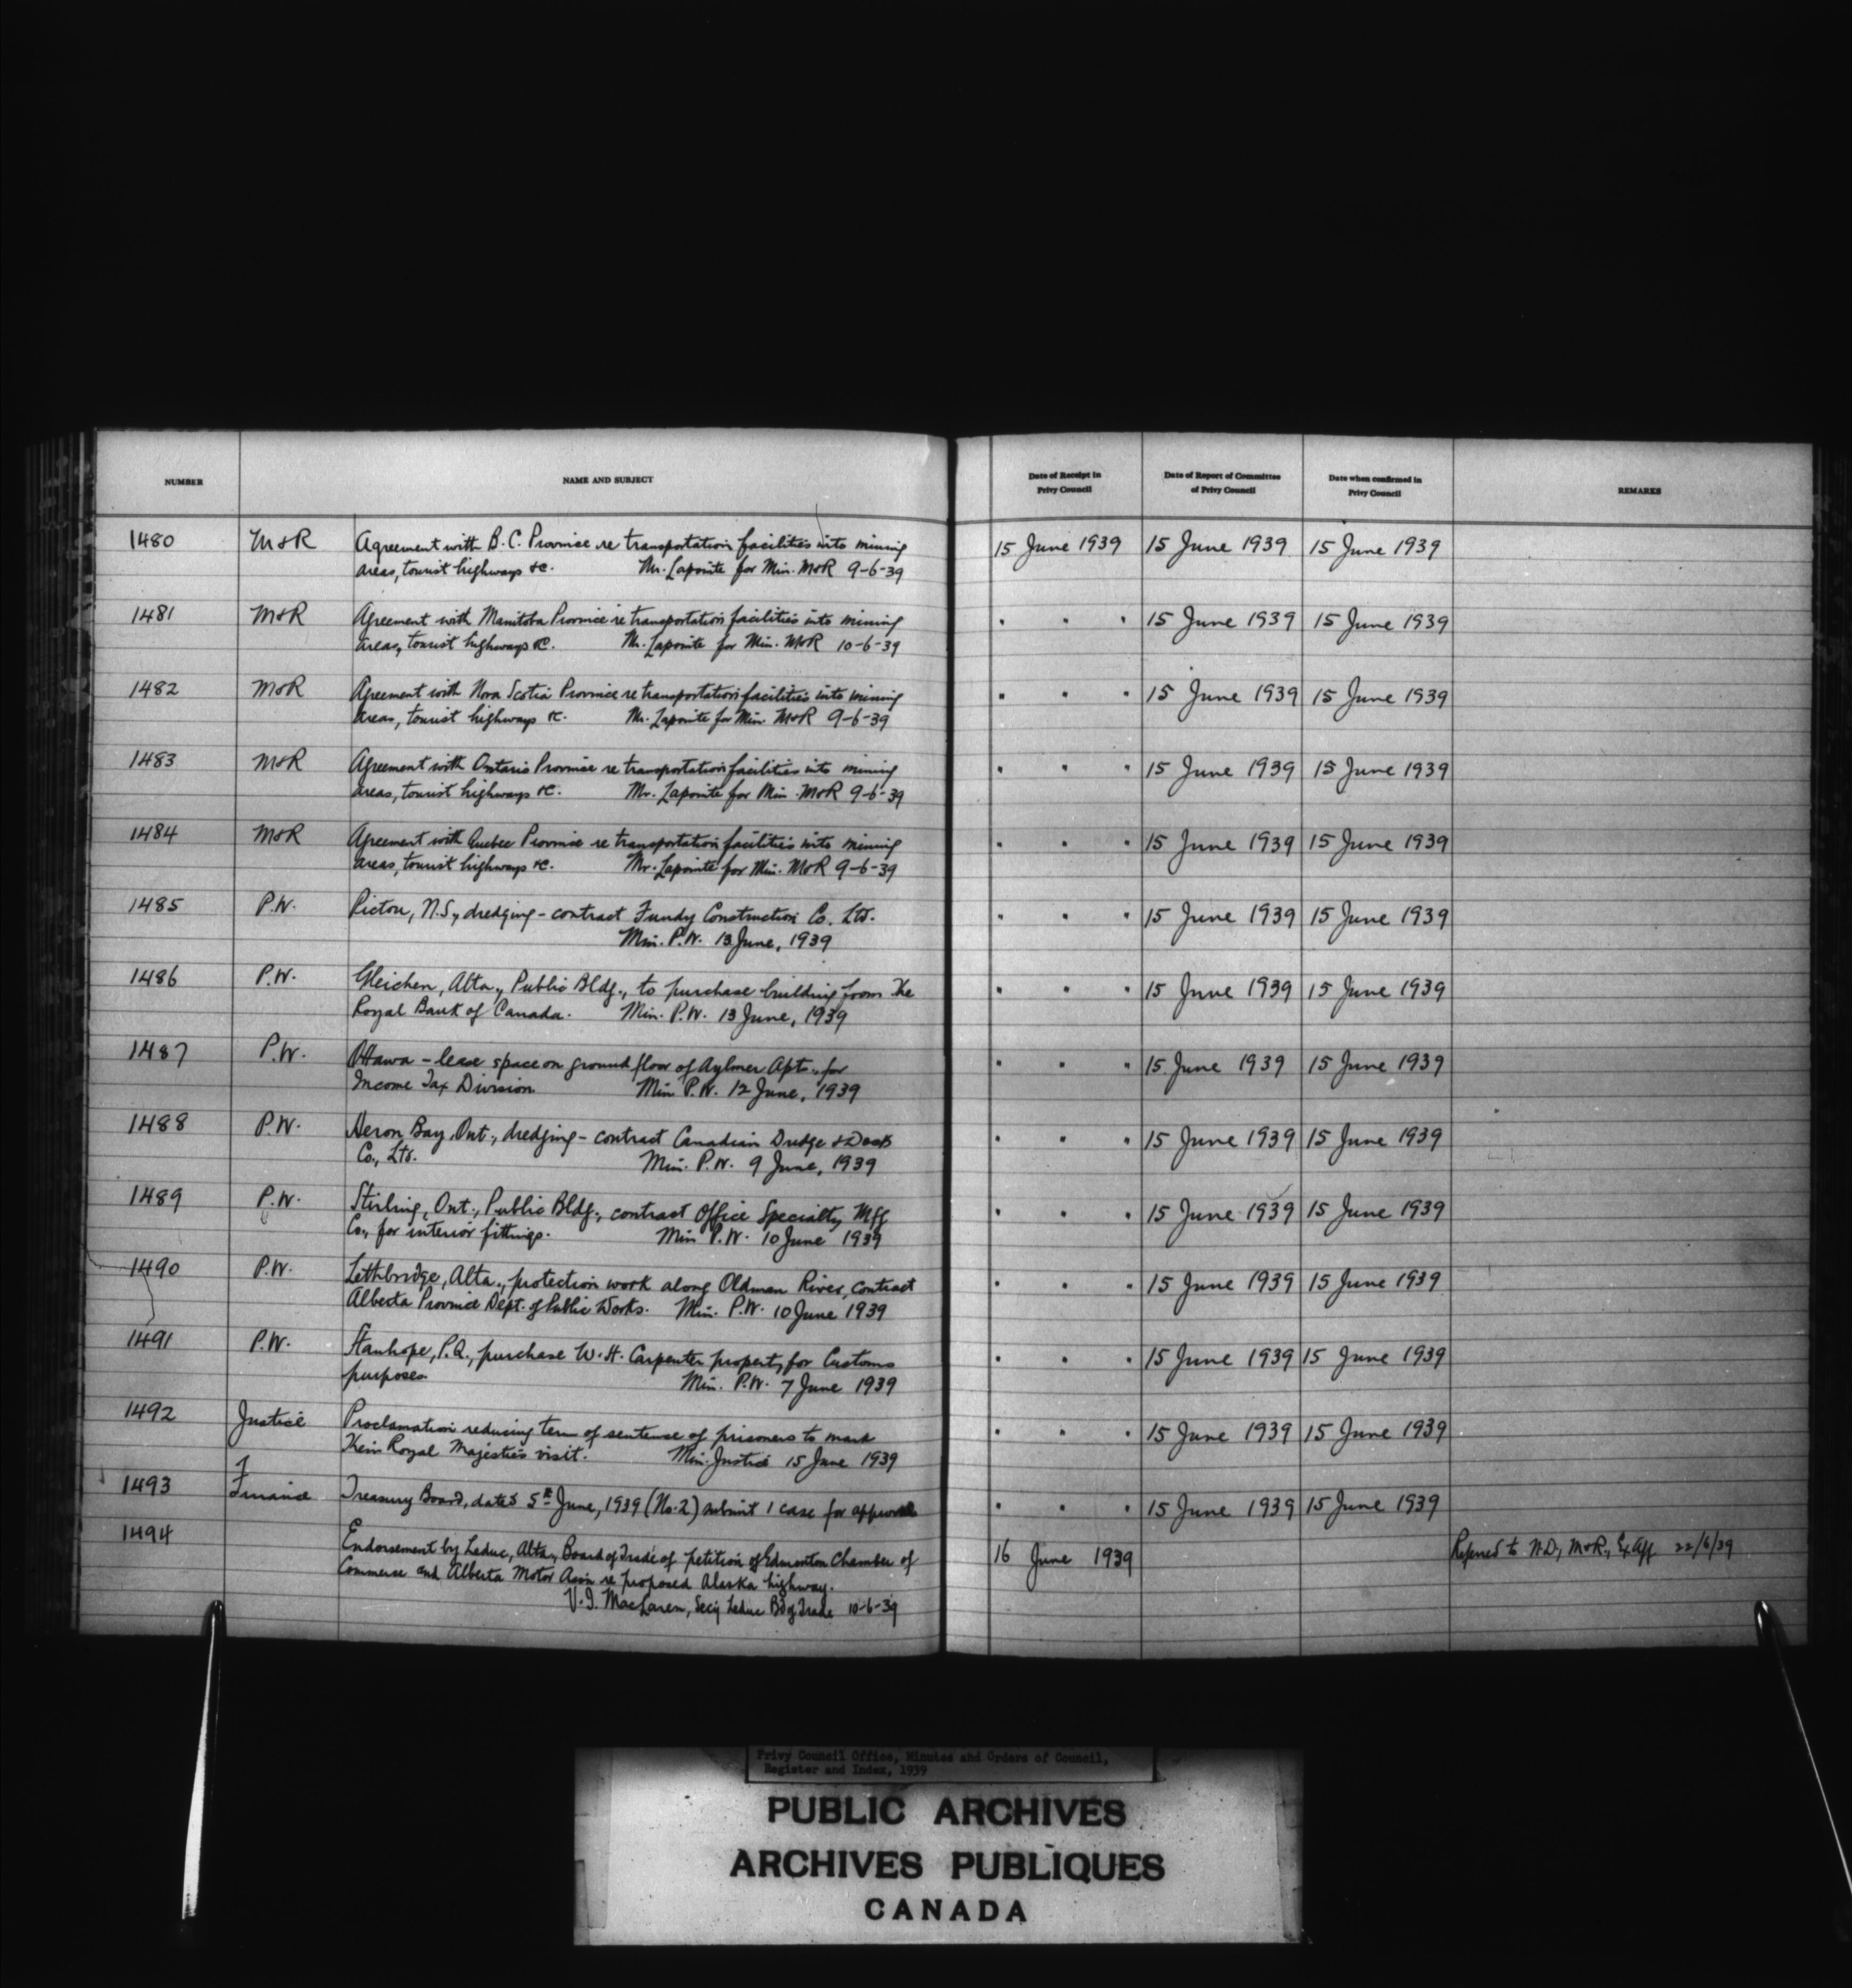 NUMBER NAME AND SUBJECT Date of Receipt in Privy Council Date of Report of Committee of Privy Council Date when confirmed in Privy Council REMARKS
1480 M&R Agreement with B.C. Province re transportation facilities into mining 15 June 1939 15 June 1939 15 June 1939
areas, tourist highways &c. Mr. Lapointe for Min. M&R 9-6-39
1481 M&R Agreement with Manitoba Province re transportation facilities into mining " " " 15 June 1939 15 June 1939
areas, tourist highways &c. Mr. Lapointe for Min. M&R 10-6-39
1482 M&R Agreement with Nova Scotia Province re transportation facilities into mining " " " 15 June 1939 15 June 1939
areas, tourist highways &c. Mr. Lapointe for Min. M&R 9-6-39
1483 M&R Agreement with Ontario Province re transportation facilities into mining " " " 15 June 1939 15 June 1939
areas, tourist highways &c. Mr. Lapointe for Min. M&R 9-6-39
1484 M&R Agreement with Quebec Province re transportation facilities into mining " " " 15 June 1939 15 June 1939
areas, tourist highways &c. Mr. Lapointe for Min. M&R 9-6-39
1485 P.W. Pictou, N.S., dredging - contract Fundy Construction Co. Ltd. " " " 15 June 1939 15 June 1939
Min. P.W. 13 June, 1939
1486 P.W. Gleichen, Alta., Public Bldg., to purchase building from The " " " 15 June 1939 15 June 1939
Royal Bank of Canada. Min. P.W. 13 June, 1939
1487 P.W. Ottawa - lease space on ground floor of Aylmer Apts. for " " " 15 June 1939 15 June 1939
Income Tax Division Min P.W. 12 June, 1939
1488 P.W. Heron Bay, Ont., dredging - contract Canadian Dredge & Dock " " " 15 June 1939 15 June 1939
Co., Ltd. Min. P.W. 9 June, 1939
1489 P.W. Stirling, Ont., Public Bldg., contract Office Specialty Mfg " " " 15 June 1939 15 June 1939
Co., for interior fittings. Min P.W. 10 June 1939
1490 P.W. Lethbridge, Alta., protection work along Oldman River, contract " " " 15 June 1939 15 June 1939
Alberta Province Dept. of Public Works. Min. P.W. 10 June 1939
1491 P.W. Stanhope, P.Q., purchase W.H. Carpenter property for Customs " " " 15 June 1939 15 June 1939
purposes. Min. P.W. 7 June 1939
1492 Justice Proclamation reducing term of sentense of prisoners to mark " " " 15 June 1939 15 June 1939
Their Royal Majesties visit. Min. Justice 15 June 1939
1493 Finance Treasury Board, dated 5th June, 1939 (No. 2) submit 1 case for approval " " " 15 June 1939 15 June 1939
1494 Endorsement by Leduc, Alta., Board of Trade of petition of Edmonton Chamber of 16 June 1939 Referred to N.D., M&R., Ex Aff 22/6/39
Commerce and Alberta Motor Assn re proposed Alaska highway.
V.I. MacLaren, Secy Leduc Bd of Trade 10-6-39
Privy Council Office, Minutes and Orders of Council,
Register and Index, 1939
PUBLIC ARCHIVES
ARCHIVES PUBLIQUES
CANADA